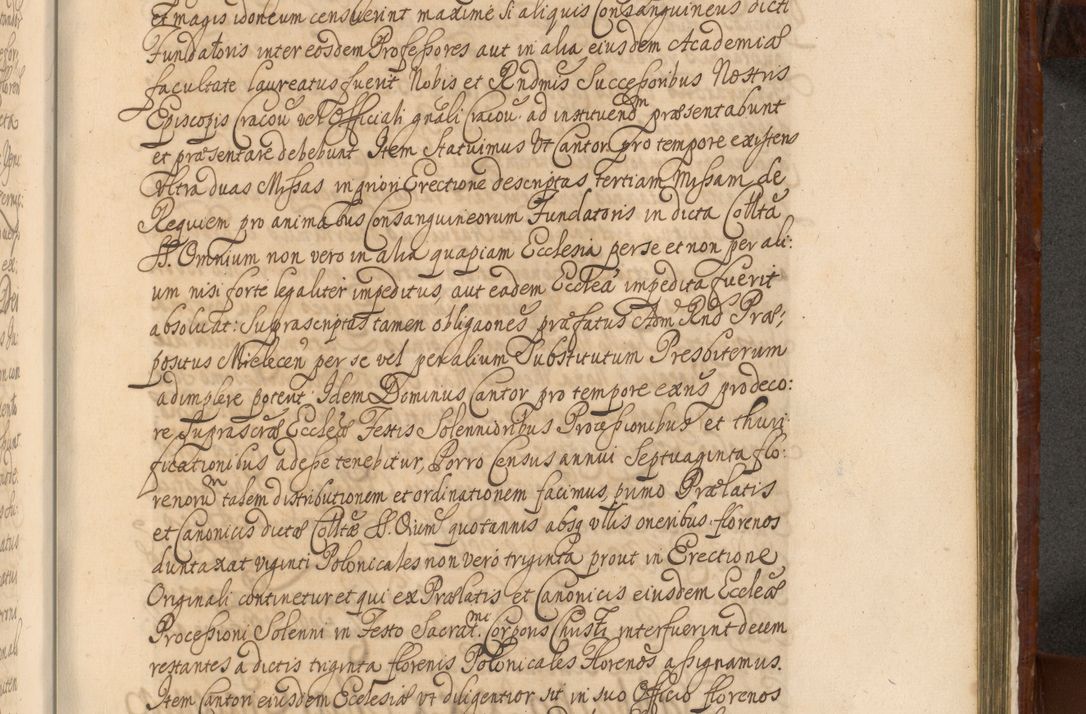 et magis idoneum censuerint maxime si aliquis Consanguineus dicti
Fundatoris inter eosdem Professores aut in alia eiusdem Academiæ
facultate laureatus fuerit Nobis et Rndmis Successoribus Nostris
Episcopis Cracou: vel Officiali gnãli Cracou: ad instituendm præsentabunt
et præsentare debebunt Item Statuimus Vt Cantor pro tempore existens
Vltra duas Missas in priori Erectione descriptas, tertiam Missam de
Requiem pro animabus Consanguineorum Fundatoris in dicta Colltã
SS. Omnium non vero in alia quapiam Ecclesia per se et non per ali:
um nisi forte legaliter impeditus aut eadem Ecclea impedita fuerit
absoluat: Suprascriptas tamen obligãones præfatus Adm Rnd Præ:
positus Mielecen per se vel per alium Substitutum Presbiterum
adimplere potent. Idem Dominus Cantor pro tempore exñs pro deco:
re Suprascræ Eccleæ Festis Solennioribus Processionibus et thuri:
ficationibus adesse tenebitur, Porro Census annui Septuaginta flo:
renorũ talem distributionem et ordinationem facimus, primo Prælatis
et Canonicis dictæ Colltæ SS. Oium quotannis absq vllis oneribus florenos
duntaxat viginti Polonicales non vero triginta prout in Erectione
Originali continetur et qui ex Prælatis et Canonicis eiusdem Eccleæ
Processioni Solenni in Festo Sacratmi Corporis Christi interfuerint decem
restantes a dictis triginta florenis Polonicales Florenos assignamus.
Item Cantori eiusdem Ecclesiæ vt diligentior sit in suo Officio florenos